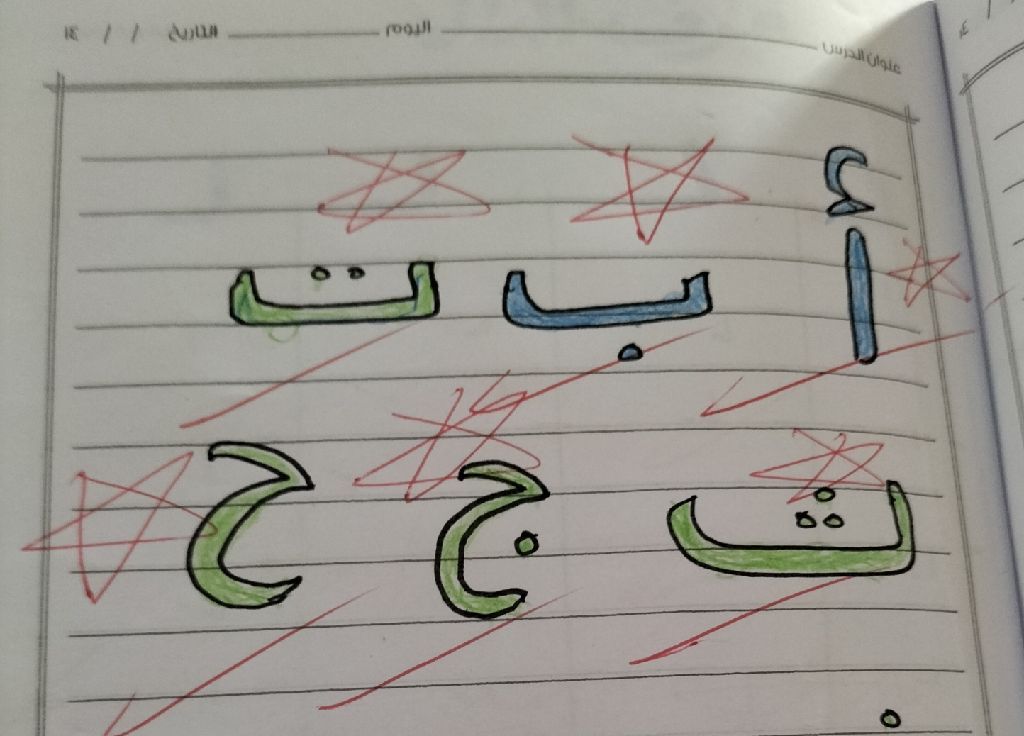 عنوان الدرس اليوم التاريخ / / ١٤
أ ب ت
ث ج ح